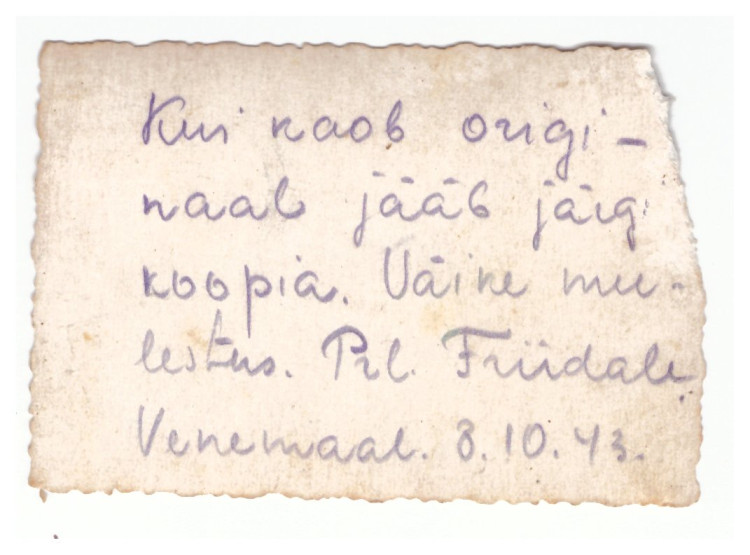 Kui kaob origi-
naal jääb järgi
koopia. Väike mä-
lestus. Prl. Friidale
Venemaal. 3.10.43.